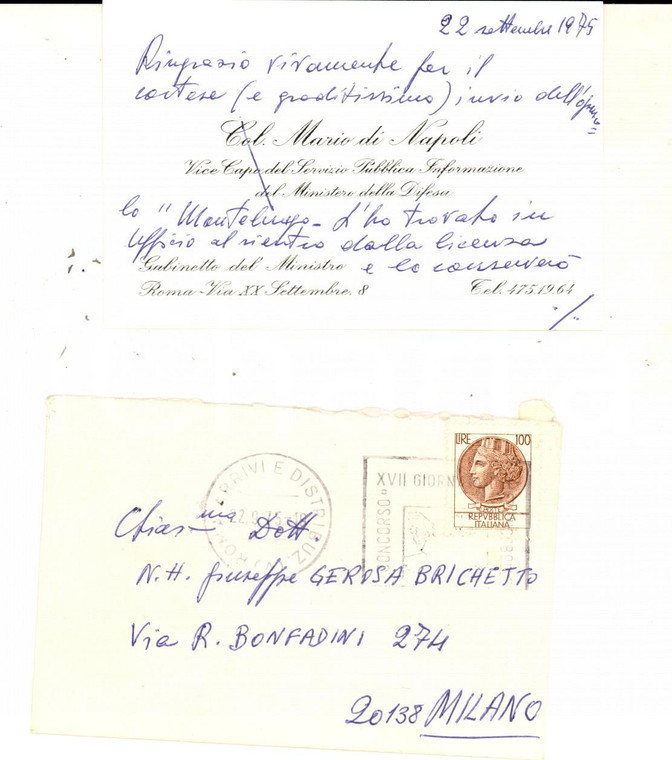 22 settembre 1975
Ringrazio vivamente per il
cortese (e graditissimo) invio dell'opusco„
Col. Mario di Napoli
Vice Capo del Servizio Pubblica Informazione
del Ministero della Difesa
lo "Montelungo- L'ho trovato in
ufficio al rientro dalla licenza
Gabinetto del Ministro e lo conserverò
Roma - Via XX Settembre, 8 Tel. 475.19.64
./.
LIRE 100
REPVBBLICA
ITALIANA
ROMA ARRIVI E DISTRIBUZ
22.9.75-18
XVII GIORN
CONCORSO
Chias-ma Dott
N.H. Giuseppe GEROSA BRICHETTO
Via R. BONFADINI 274
20138 MILANO